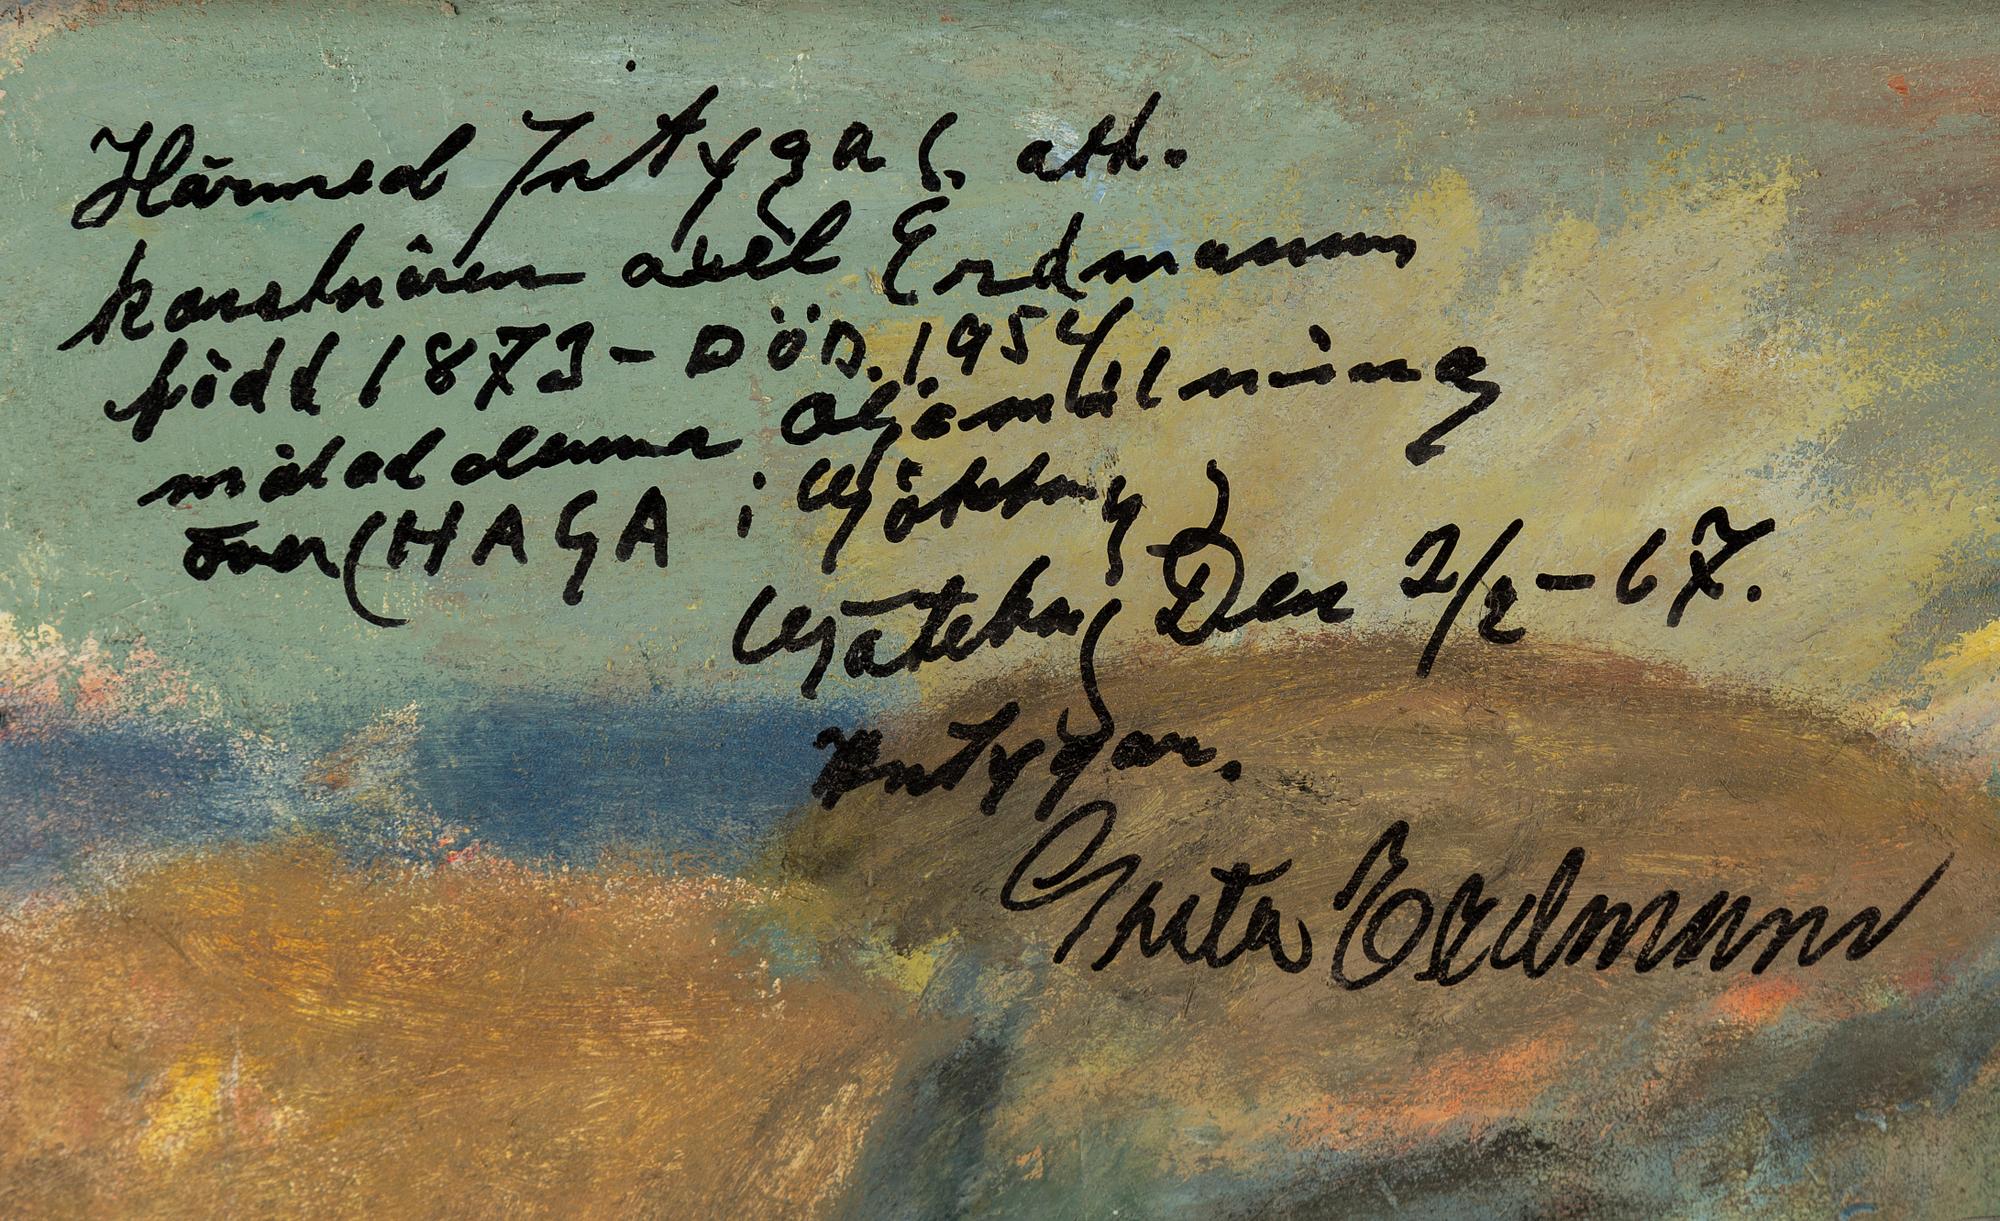 Härmed Intygas att.
konstnären axel Erdmann
född 1873 - DÖD. 1954
målad denna oljemålning
över (HAGA i Göteborg)
Göteborg Den 2/2 - 67.
Intygar.
Greta Erdmann